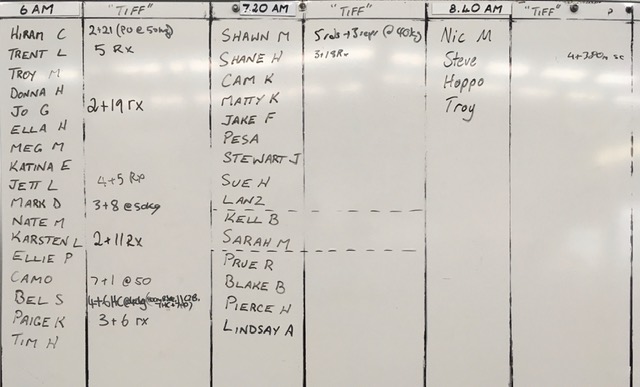 6 AM "TIFF" 7.20 AM "TIFF" 8.40 AM "TIFF"
HIRAM C 2+21 (PO @ 50kg) SHAWN M 5 rds + 3 reps @ 40kg) Nic M
TRENT L 5 Rx SHANE H 3+18Rx Steve
TROY M CAM K Hoppo
DONNA H MATTY K Troy
JO G 2+19 rx JAKE F
ELLA H PESA
MEG M STEWART J
KATINA E SUE H
JETT L 4+5 Rp LANZ
MARK D 3+8 @ 50kg KELL B
NATE M SARAH M
KARSTEN L 2+11 Rx PRUE R
ELLIE P BLAKE B
CAMO 7+1 @ 50 PIERCE H
BEL S 4+6HC@40kg LINDSAY A
PAIGE K 3+6 rx
TIM H